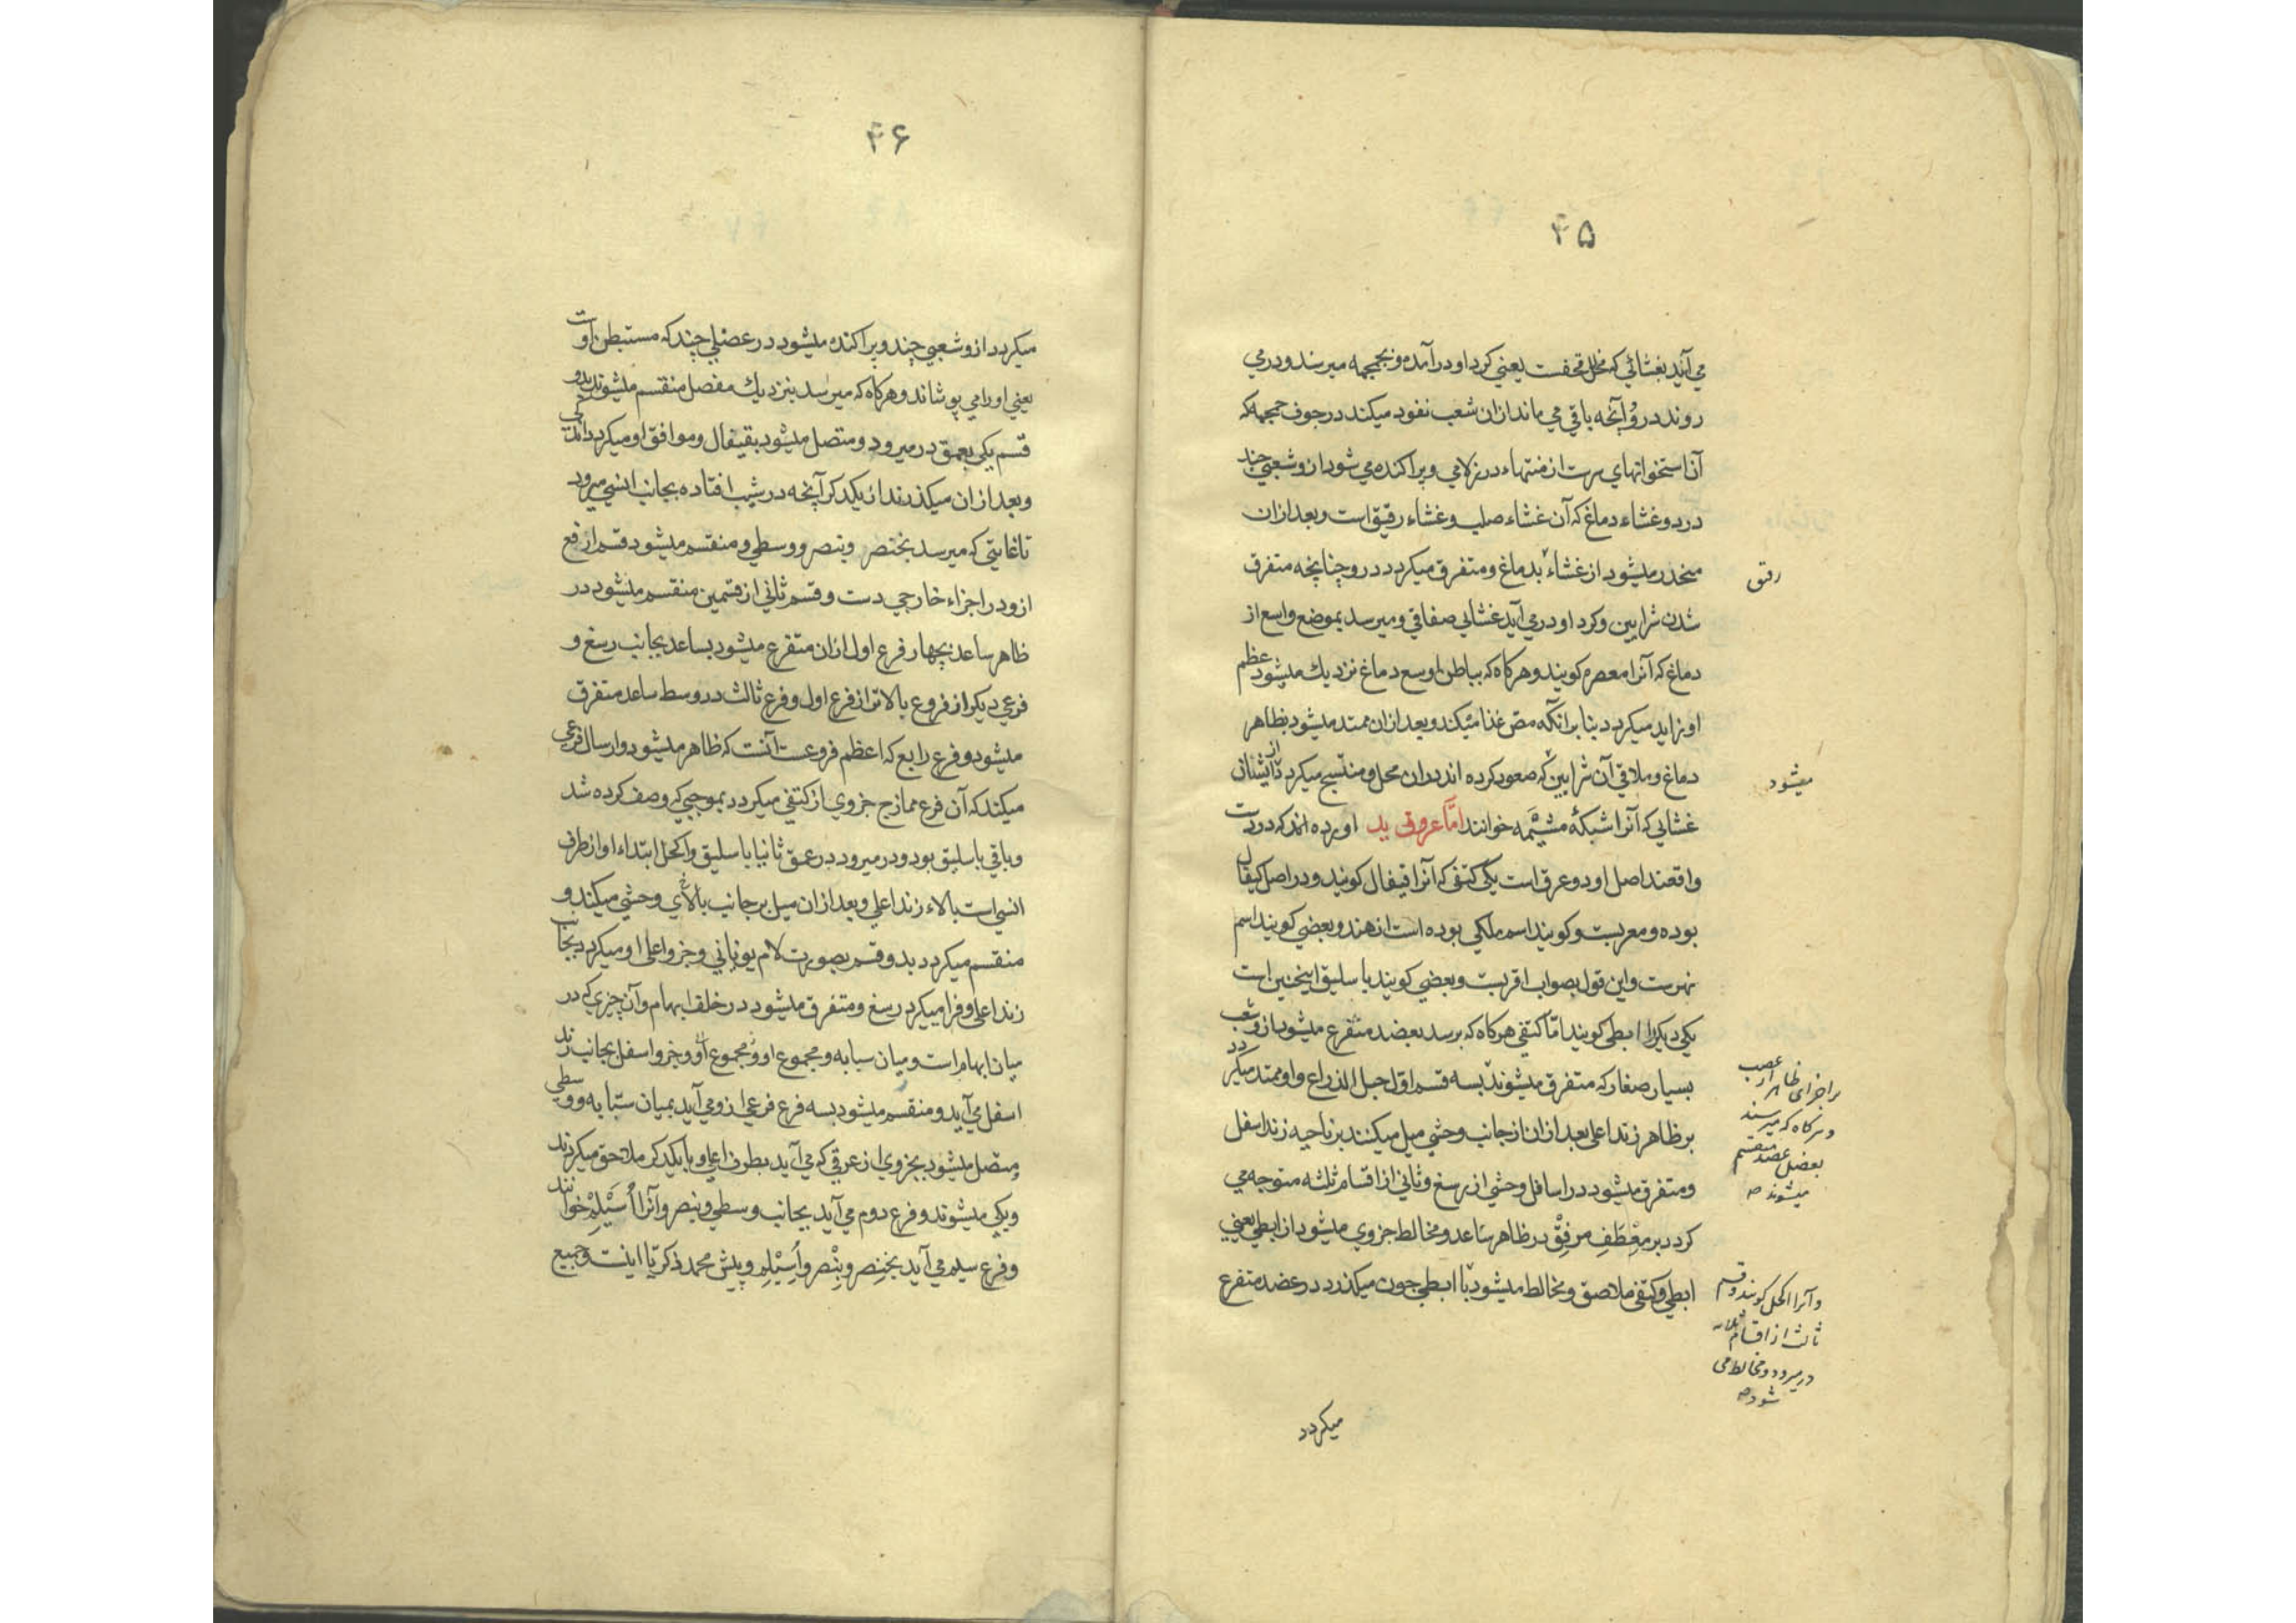 ۴۵
می آید بغشائی که مخلل قحفست یعنی کرد او درآمده و بجمجمه میرسد و درمی
روند درو وآنچه باقی می ماند ازان شعب نفود میکند در جوف جمجمه که
آن استخوانهای سرست از منتهاء درز لامی و پراکنده می شود ازو شعبی چند
در دو غشاء دماغ که آن غشاء صلب و غشاء رقیق است و بعد ازان
منحدر میشود از غشاء بدماغ و متفرق میکردد درو چنانچه متفرق
رقیق
شدن شرایین و کرد او درمی آید غشایی صفاقی و میرسد بموضع واسع از
دماغ که آنرا معصره کویند و هرکاه که بباطن اوسع دماغ نزدیك میشود عظم
او زاید میکردد بنا برآنکه مص غذا میکند و بعد ازان ممتد میشود بظاهر
دماغ و ملاقی آن شرایین که صعود کرده اند دران محل و منتسج میکردد از ایشان
میشود
غشایی که آنرا شبکهٔ مشیمه خوانند امّا عروق ید آورده اند که در دست
واقعند اصل او دو عرق است یکی کتفی که آنرا قیفال کویند و در اصل کیفال
بوده و معربست و کویند اسم ملکی بوده است از هند و بعضی کویند اسم
نهرست و این قول بصواب اقربست و بعضی کویند باسلیق اینچنین است
یکی دیکرا ابطی کویند امّا کتفی هرکاه که برسد بعضد متفرع میشود ازو شعب
بسیار صغار که متفرق میشوند بسه قسم اوّل حبل الذراع و او ممتد میکردد
بر اجزای ظاهر از عضد
و هرکاه که میرسند
بمفصل عضد منقسم
میشوند صح
بر ظاهر زند اعلی بعد ازان از جانب وحشی میل میکنند بر ناحیه زند اسفل
و متفرق میشود در اسافل وحشی از رسغ و ثانی از اقسام ثلثه متوجه می
کردد بر معْطَفِ مرفِقْ در ظاهر ساعد و مخالط جزوی میشود از ابطی یعنی
ابطی و کتفی ملاصق و مخالط میشود با ابطی چون میکذرد در عضد متفرع
و آنرا اکحل کویند و قسم
ثالث از اقسام ثلاثه
درمیرود و مخالط می
شود صح
میکردد
۴۶
میکردد ازو شعبی چند و پراکنده میشود در عضلی چند که مستبطن اوست
یعنی اورا می پوشاند و هرکاه که میرسد بنزدیك مفصل منقسم میشوند بدو
قسم یکی بعمق درمیرود و متصل میشود بقیفال و موافق او میکردد اندکی
و بعد ازان میکذرند از یکدکر آنچه در شیب افتاده بجانب انسی میرود
تا غایتی که میرسد بخنصر و بنصر و وسطی و منقسم میشود قسم ارفع
ازو در اجزاء خارجی دست و قسم ثانی از قسمین منقسم میشود در
ظاهر ساعد بچهار فرع اول ازان متفرع میشود بساعد بجانب رسغ و
فرعی دیکر از فروع بالاتر از فرع اول و فرع ثالث در وسط ساعد متفرق
میشود و فرع رابع که اعظم فروعست آنست که ظاهر میشود و ارسال فرعی
میکند که آن فرع ممازج جزوی از کتفی میکردد بموجبی که وصف کرده شد
و باقی باسلیق بود و درمیرود در عمق ثانیا باسلیق و اکحل ابتداء او از طرف
انسی است بالاء زند اعلی و بعد ازان میل بر جانب بالای وحشی میکند و
منقسم میکردد بدو قسم بصورت لام یونانی و جزو اعلی او میکردد بجانب
زند اعلی و فرا میکیرد رسغ و متفرق میشود در خلف ابهام و آن چیزی که در
میان ابهام است و میان سبابه و مجموع او و مجموع او و جزو اسفل بجانب زند
اسفل می آید و منقسم میشود بسه فرع فرعی ازو می آید بمیان سبّابه و وسطی
و متصل میشود بجزوی از عرقی که می آید بطرف اعلی و با یکدکر ملاحق میکردند
و یکی میشوند و فرع دوم می آید بجانب وسطی و بنصر و آنرا اُسَیْلِمْ خوانند
و فرع سیم می آید بخنصر و بنْصر و اُسَیْلِم و پیش محمد ذکریّا اینست و جمیع